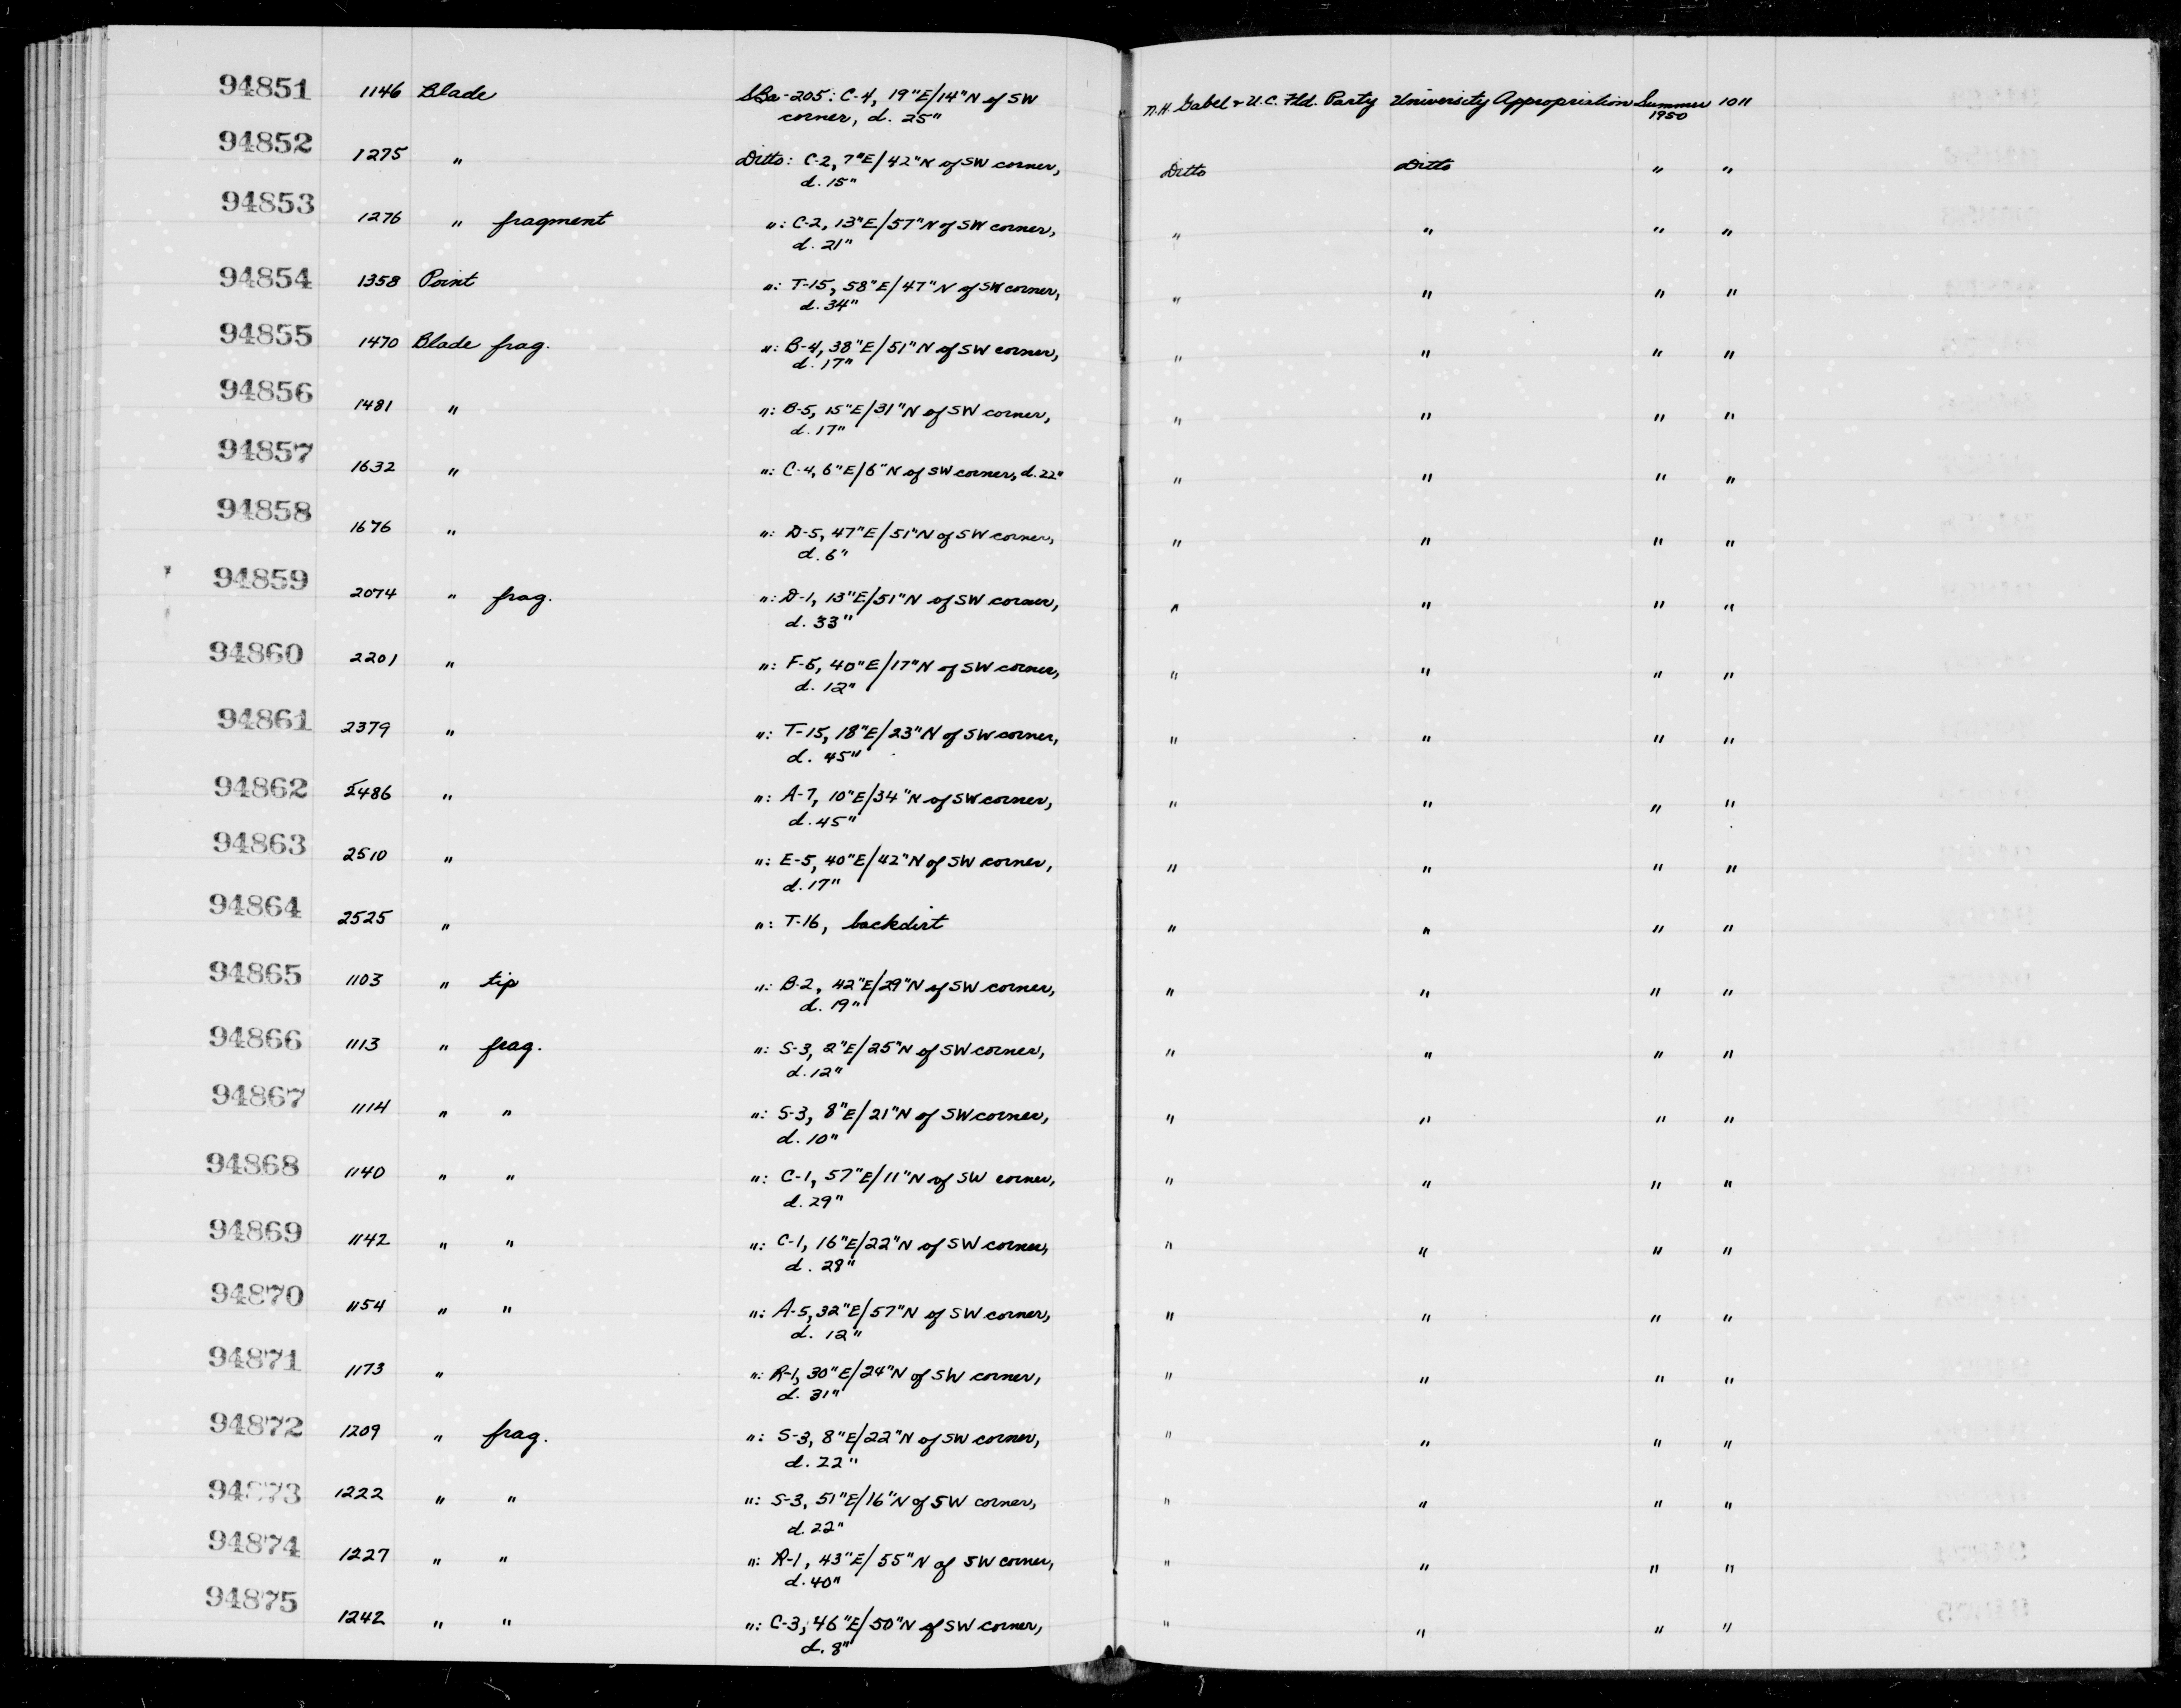 94851 1146 Blade SBa-205: C-4, 19"E/14"N of SW N.H. Gabel & U.C. Fld. Party University Appropriation Summer 1011
corner, d. 25" 1950
94852 1275 " Ditto: C-2, 7"E/42"N of SW corner, Ditto Ditto " "
d. 15"
94853 1276 " fragment ": C-2, 13"E/57"N of SW corner, " " " "
d. 21"
94854 1358 Point ": T-15, 58"E/47"N of SW corner, " " " "
d. 34"
94855 1470 Blade frag. ": B-4, 38"E/51"N of SW corner, " " " "
d. 17"
94856 1481 " ": B-5, 15"E/31"N of SW corner, " " " "
d. 17"
94857 1632 " ": C-4, 6"E/6"N of SW corner, d. 22" " " " "
94858 1676 " ": D-5, 47"E/51"N of SW corner, " " " "
d. 6"
94859 2074 " frag. ": D-1, 13"E/51"N of SW corner, " " " "
d. 33"
94860 2201 " ": F-6, 40"E/17"N of SW corner, " " " "
d. 12"
94861 2379 " ": T-15, 18"E/23"N of SW corner, " " " "
d. 45"
94862 2486 " ": A-7, 10"E/34"N of SW corner, " " " "
d. 45"
94863 2510 " ": E-5, 40"E/42"N of SW corner, " " " "
d. 17"
94864 2525 " ": T-16, backdirt " " " "
94865 1103 " tip ": B-2, 42"E/29"N of SW corner, " " " "
d. 19"
94866 1113 " frag. ": S-3, 2"E/25"N of SW corner, " " " "
d. 12"
94867 1114 " " ": S-3, 8"E/21"N of SW corner, " " " "
d. 10"
94868 1140 " " ": C-1, 57"E/11"N of SW corner, " " " "
d. 29"
94869 1142 " " ": C-1, 16"E/22"N of SW corner, " " " "
d. 28"
94870 1154 " " ": A-5, 32"E/57"N of SW corner, " " " "
d. 12"
94871 1173 " ": R-1, 30"E/24"N of SW corner, " " " "
d. 31"
94872 1209 " frag. ": S-3, 8"E/22"N of SW corner, " " " "
d. 22"
94873 1222 " " ": S-3, 51"E/16"N of SW corner, " " " "
d. 22"
94874 1227 " " ": R-1, 43"E/55"N of SW corner, " " " "
d. 40"
94875 1242 " " ": C-3, 46"E/50"N of SW corner, " " " "
d. 8"